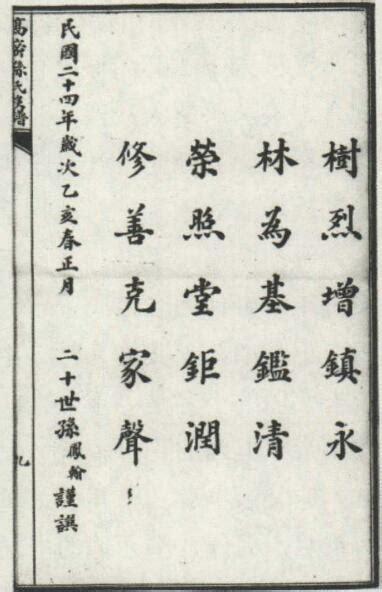 樹烈增鎮永
林為基鑑清
榮煦堂鉅潤
修善克家聲
民國二十四年歲次乙亥春正月 二十世孫鳳翰謹譔
高密孫氏家譜
九